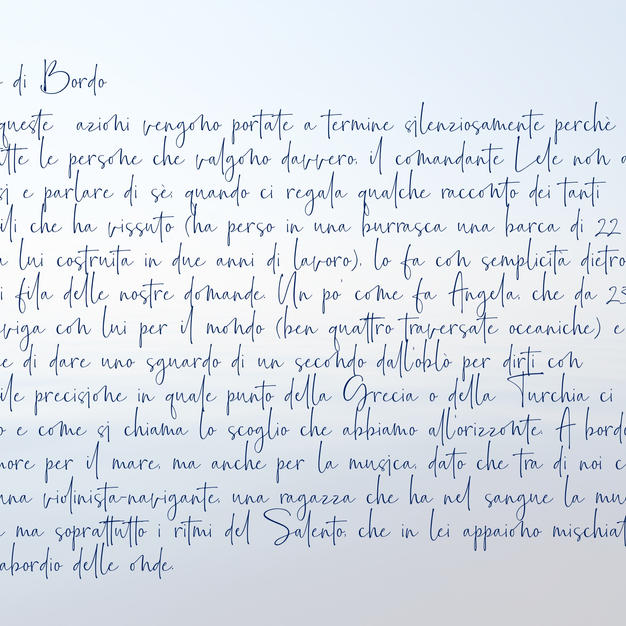 di Bordo
queste azioni vengono portate a termine silenziosamente perchè
tte le persone che valgono davvero, il comandante Lele non a
si e parlare di sè, quando ci regala qualche racconto dei tanti
ili che ha vissuto (ha perso in una burrasca una barca di 22
a lui costruita in due anni di lavoro), lo fa con semplicità dietro
i fila delle nostre domande. Un po' come fa Angela, che da 23
viga con lui per il mondo (ben quattro traversate oceaniche) e
e di dare uno sguardo di un secondo dall'oblò per dirti con
ile precisione in quale punto della Grecia o della Turchia ci
o e come si chiama lo scoglio che abbiamo all'orizzonte. A bordo
more per il mare, ma anche per la musica, dato che tra di noi c
una violinista-navigante, una ragazza che ha nel sangue la mu
ma soprattutto i ritmi del Salento, che in lei appaiono mischiat
abordio delle onde.